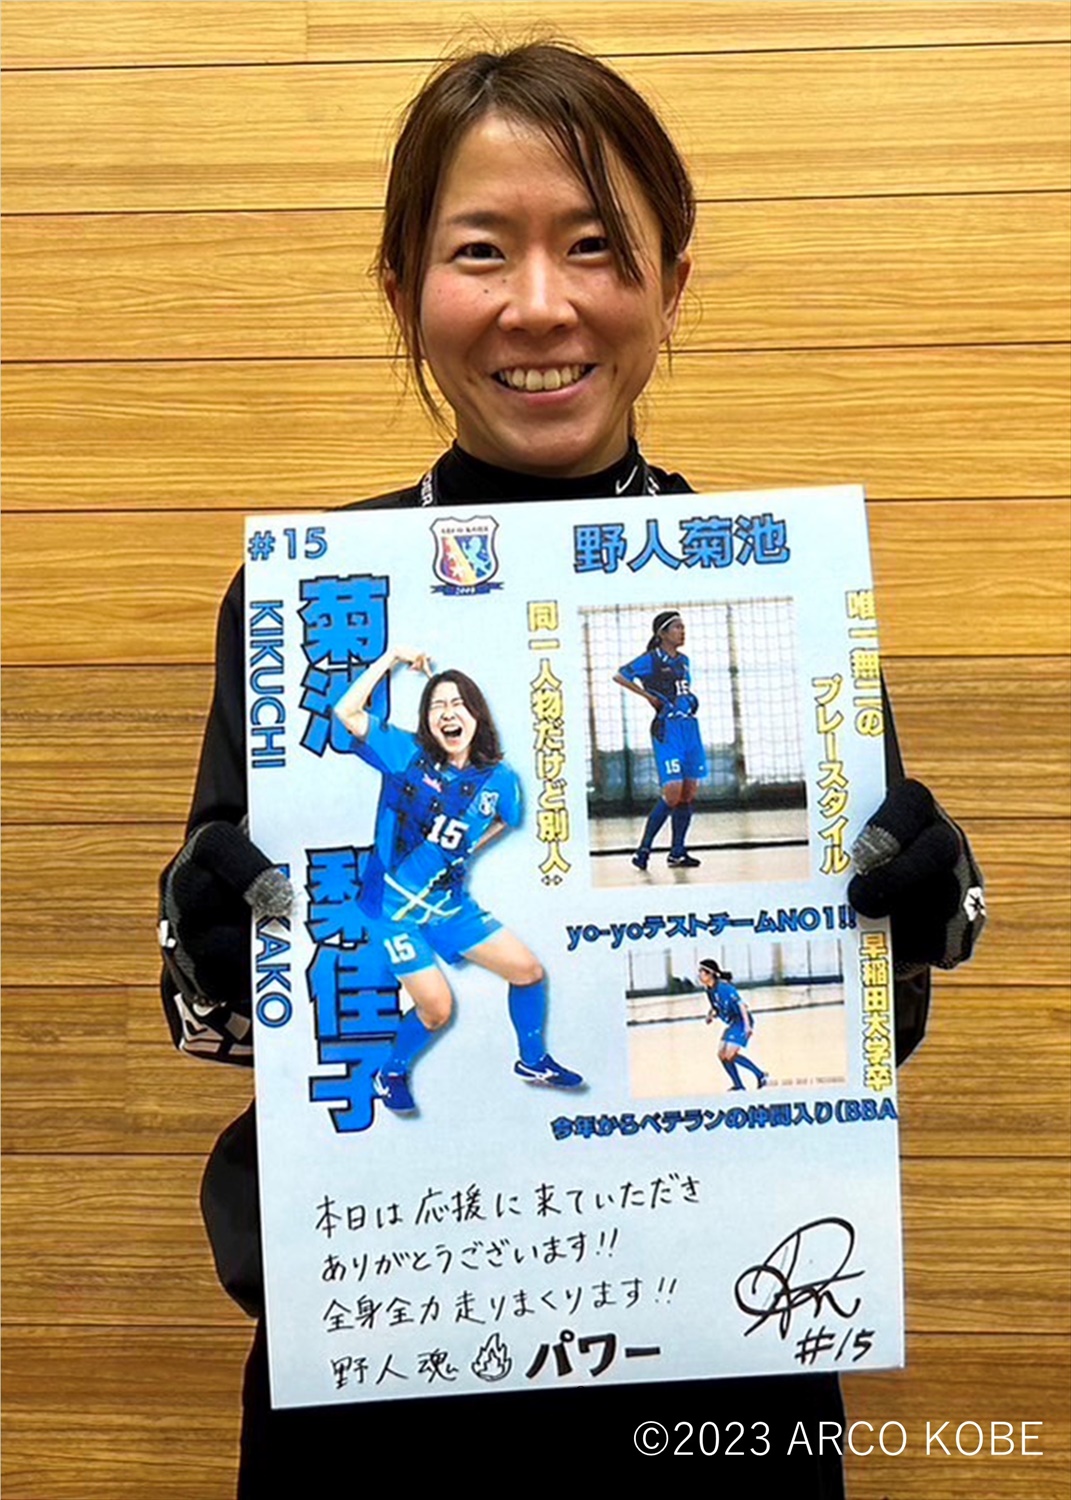 #15
野人菊池
菊池
KIKUCHI
梨佳子
KAKO
同一人物だけど別人
唯一無二の
プレースタイル
15
15
15
15
yo-yoテストチームNO1!!
早稲田大学卒
今年からベテランの仲間入り(BBA
本日は応援に来ていただき
ありがとうございます!!
全身全力走りまくります!!
野人魂 パワー
#15
©2023 ARCO KOBE